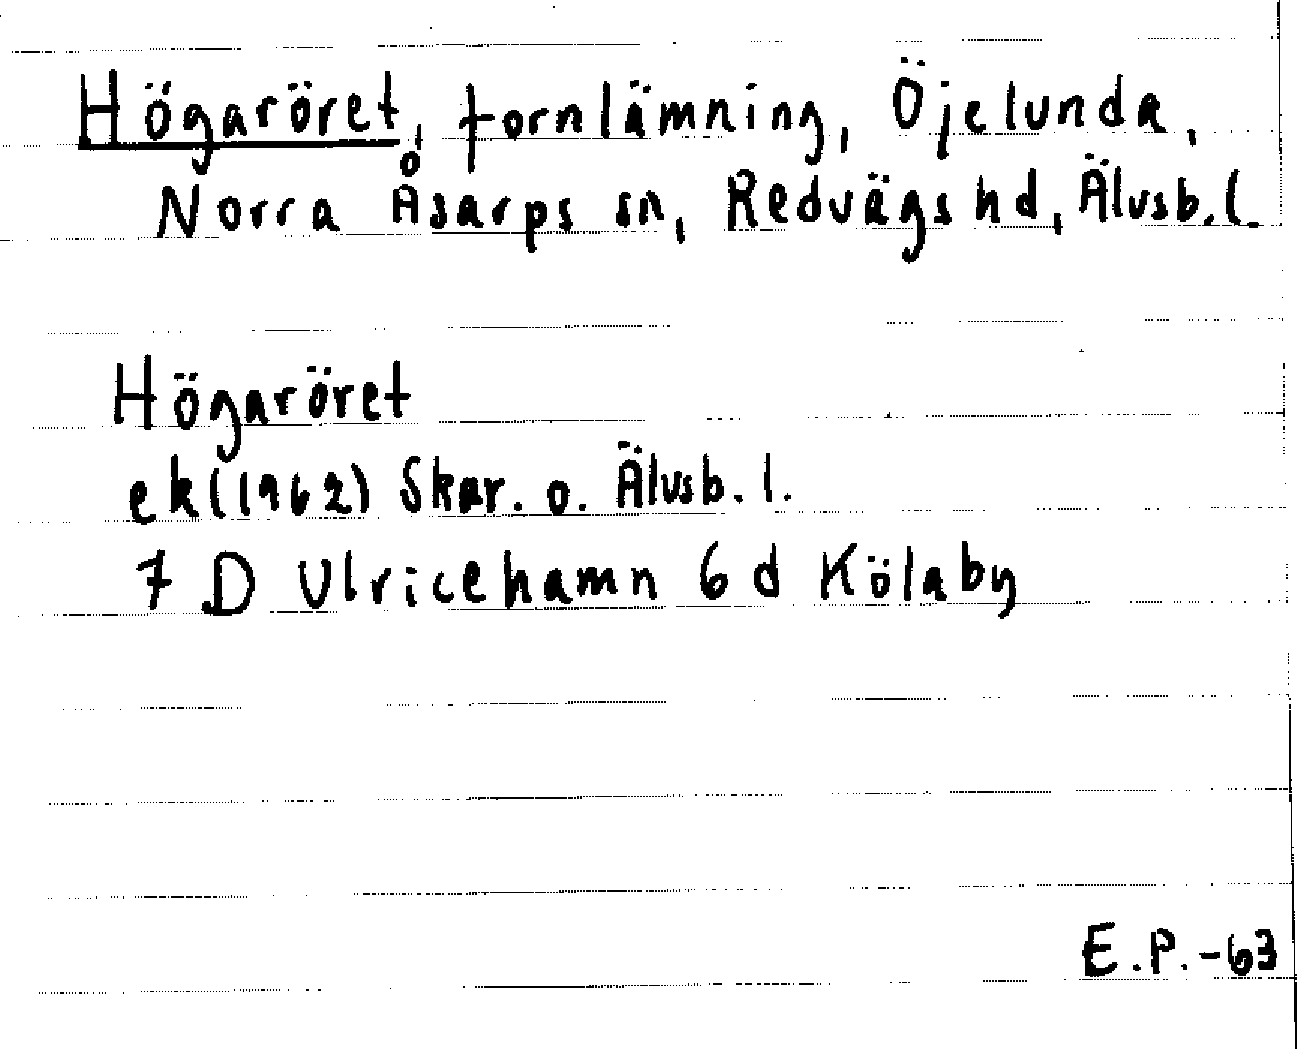 Högaröret, fornlämning, Öjelunda,
Norra Åsarps sn, Redvägs hd, Älvsb. l.
Högaröret
ek (1962) Skar. o. Älvsb. l.
7 D Ulricehamn 6 d Kölaby
E.P. -63